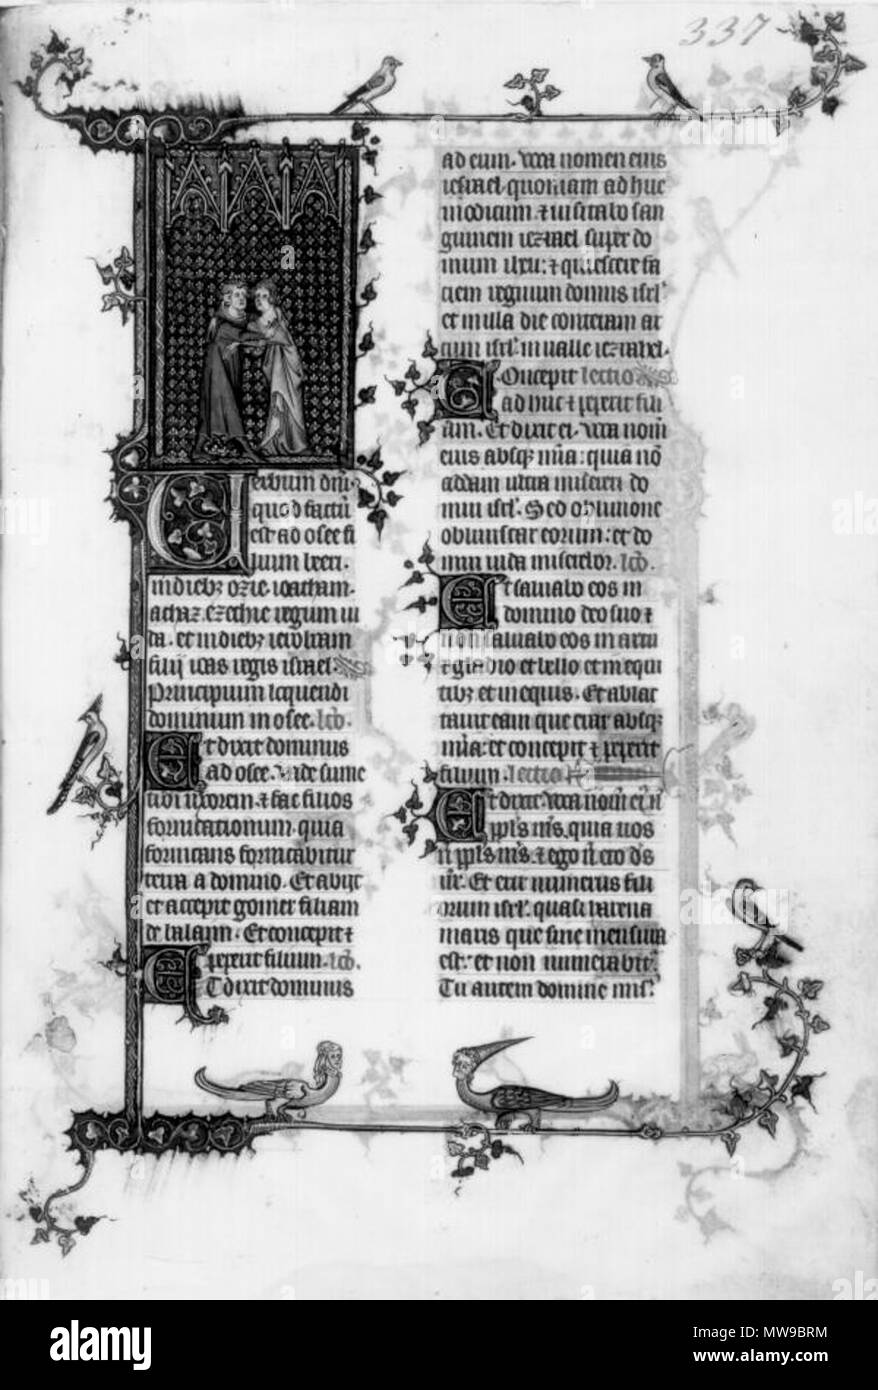 337
Verbum dni
quod factu
est ad osee fi
lium beeri.
in diebz ozie. ioatham.
achaz. ezechie regum iu
da. et in diebz ieroboam
filii ioas regis israel.
Principium loquendi
dominum in osee. lcō.
Et dixit dominus
ad osee. Vade sume
tibi uxorem. ⁊ fac filios
fornicationum. quia
fornicans fornicabitur
terra a domino. Et abijt
et accepit gomer filiam
debalaim. Et concepit ⁊
peperit filium. lcō.
Et dixit dominus
ad eum. voca nomen eius
iesrael. quoniam adhuc
modicum. ⁊ uisitabo san
guinem iezrael super do
mum ihu: ⁊ quiescere fa
ciam regnum domus isrl'
et in illa die conteram ar
cum isrl'. in ualle iezrahel.
Concepit lectio
adhuc ⁊ peperit fili
am. Et dixit ei. voca nom̄
eius absqꝫ mīa: quia nō
addam ultra misereri do
mui isrl'. Sed obliuione
obliuiscar eorum: et do
mui iuda miserebor. lcō.
Et saluabo eos in
domino deo suo ⁊
non saluabo eos in arcu
⁊ gladio et bello et in equi
tibz et in equis. Et ablac
tauit eam que erat absqꝫ
mīa: et concepit ⁊ peperit
filium. lectio
Et dixit. voca nom̄ ei' n̄
ppl's m's. quia uos
n̄ ppl's m's. ⁊ ego n̄ ero d's
ur'. Et erit numerus fili
orum isrl'. quasi harena
maris que sine mensura
est: et non numerabit'.
Tu autem domine mis'.
alamy
Image ID: MW9BRM
www.alamy.com